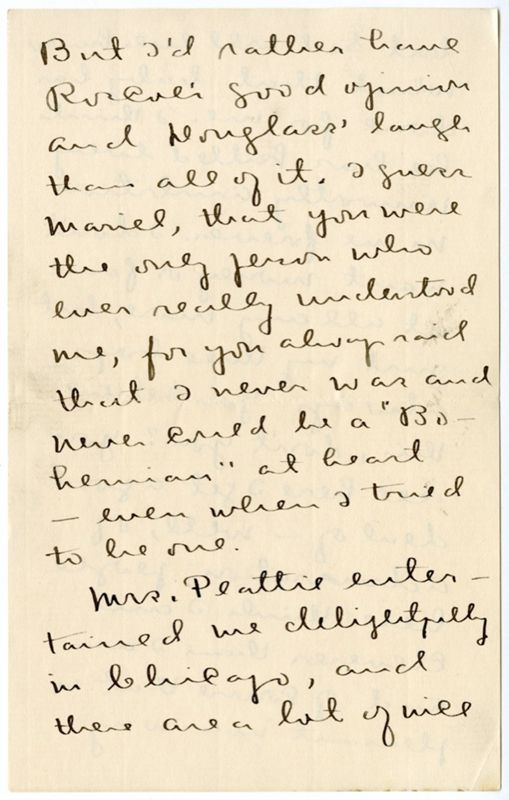 But I'd rather have
Roscoe's good opinion
and Douglass' laugh
than all of it. I guess
Mariel, that you were
the only person who
ever really understood
me, for you always said
that I never was and
never could be a "Bo-
hemian" at heart
- even when I tried
to be one.
Mrs. Peattie enter-
tained me delightfully
in Chicago, and
there are a lot of nice